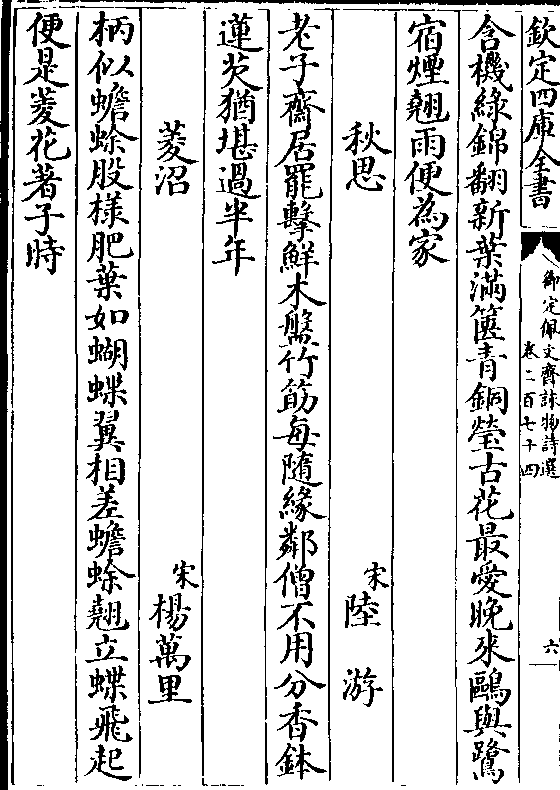 欽定四庫全書
御定佩文齋詠物詩選
卷二百七十四
六
含機綠錦翻新葉滿篋青銅瑩古花最愛晚來鷗與鷺
宿煙翹雨便為家
秋思
宋陸游
老子齋居罷擊鮮木盤竹筯每隨緣鄰僧不用分香鉢
蓮芡猶堪過半年
菱沼
宋楊萬里
柄似蟾蜍股様肥葉如蝴蝶翼相差蟾蜍翹立蝶飛起
便是菱花著子時